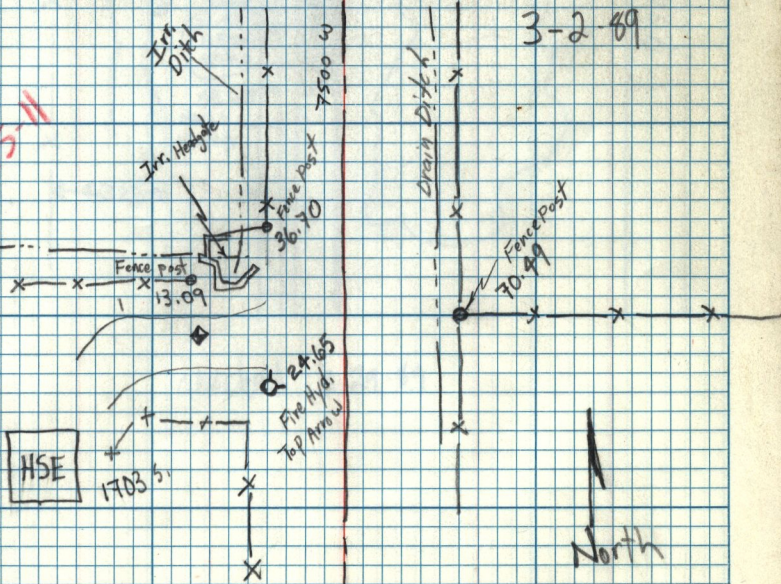 3-2-89
Irr.
Ditch
7500 W
Drain Ditch
5-11
Irr. Headgate
Fence Post
36.70
Fence Post
70.49
Fence post
13.09
24.65
Fire Hyd.
Top Arrow
HSE
1703 S.
North